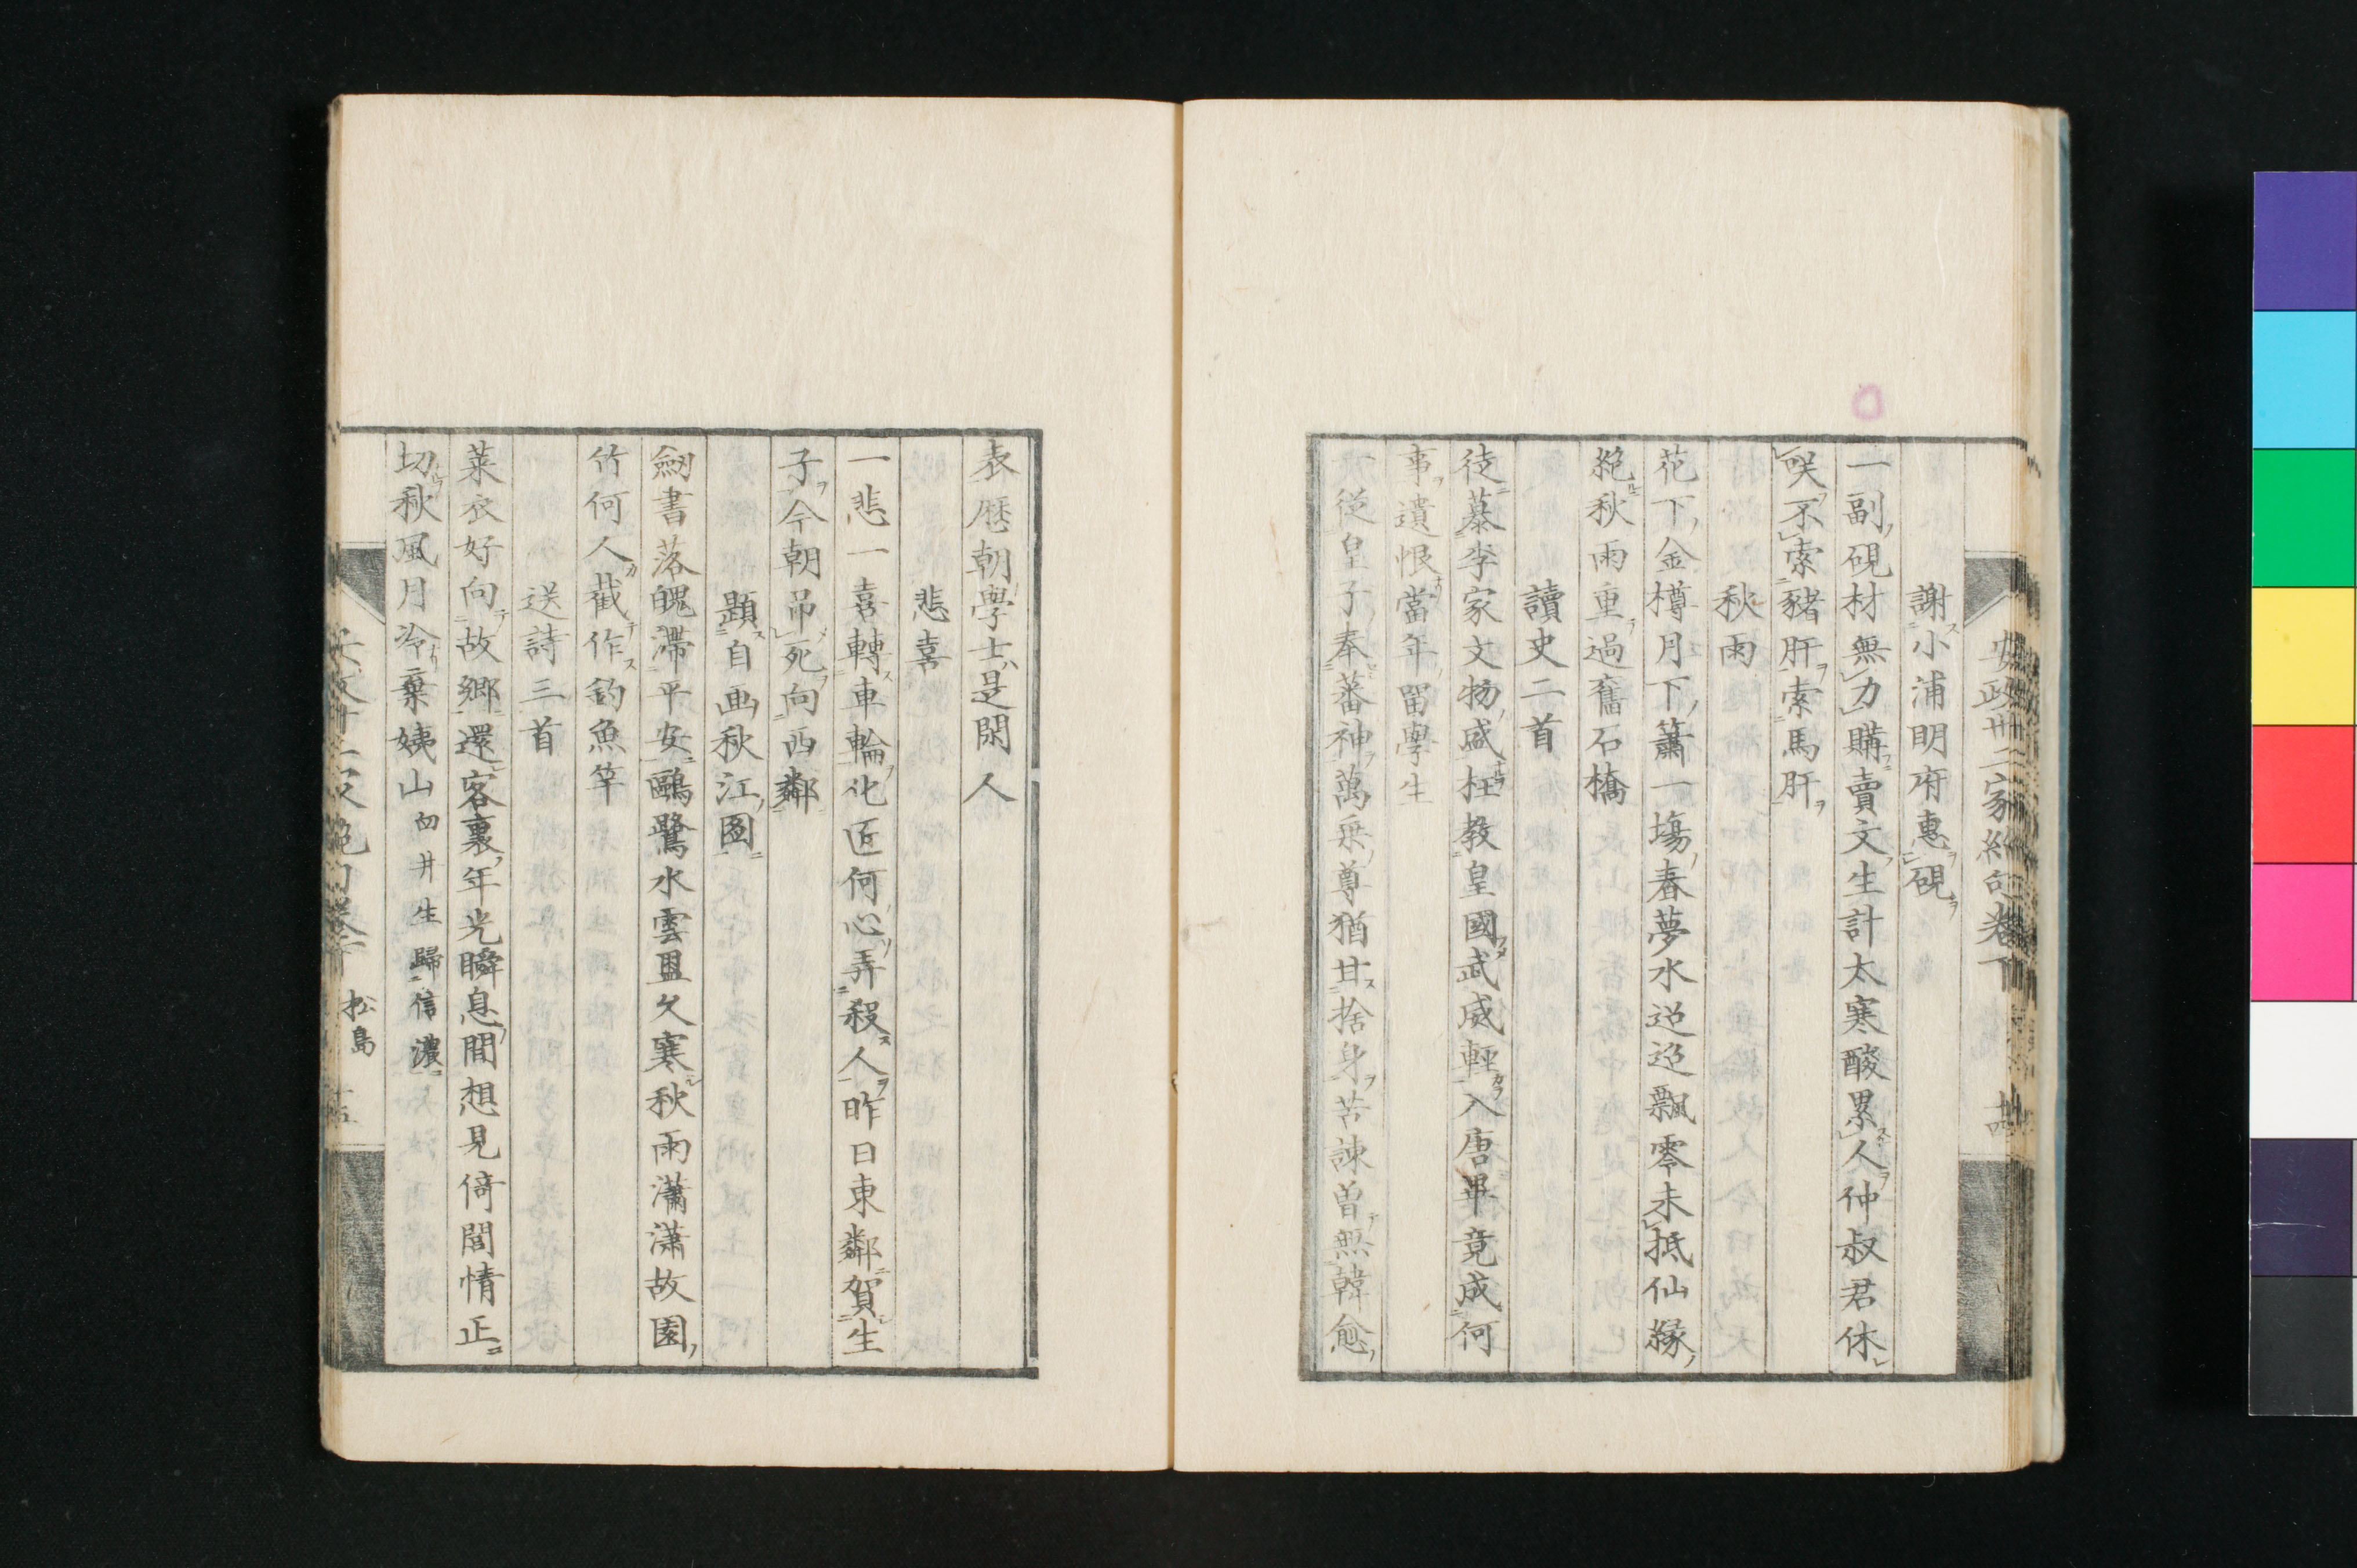 安政卅二家絶句卷下
謝小浦明府惠硯
一副硯材無力購賣文生計太寒酸累人仲叔君休
咲不索豬肝索馬肝
秋雨
花下金樽月下簫一塲春夢水迢迢飄零未抵仙緣
絶秋雨重過舊石橋
讀史二首
徒慕李家文物盛枉教皇國武威輕入唐畢竟成何
事遺恨當年留學生
一從皇子奉蕃神萬乘尊猶甘捨身苦諫曽無韓愈
表歷朝學士是閑人
悲喜
一悲一喜轉車輪化匠何心弄殺人昨日東鄰賀生
子今朝吊死向西鄰
題自画秋江圖
劍書落魄滯平安鷗鷺水雲盟久寒秋雨瀟瀟故園
竹何人截作釣魚竿
送詩三首
萊衣好向故郷還客裏年光瞬息間想見倚閭情正
切秋風月冷棄姨山 向井生歸信濃
松島